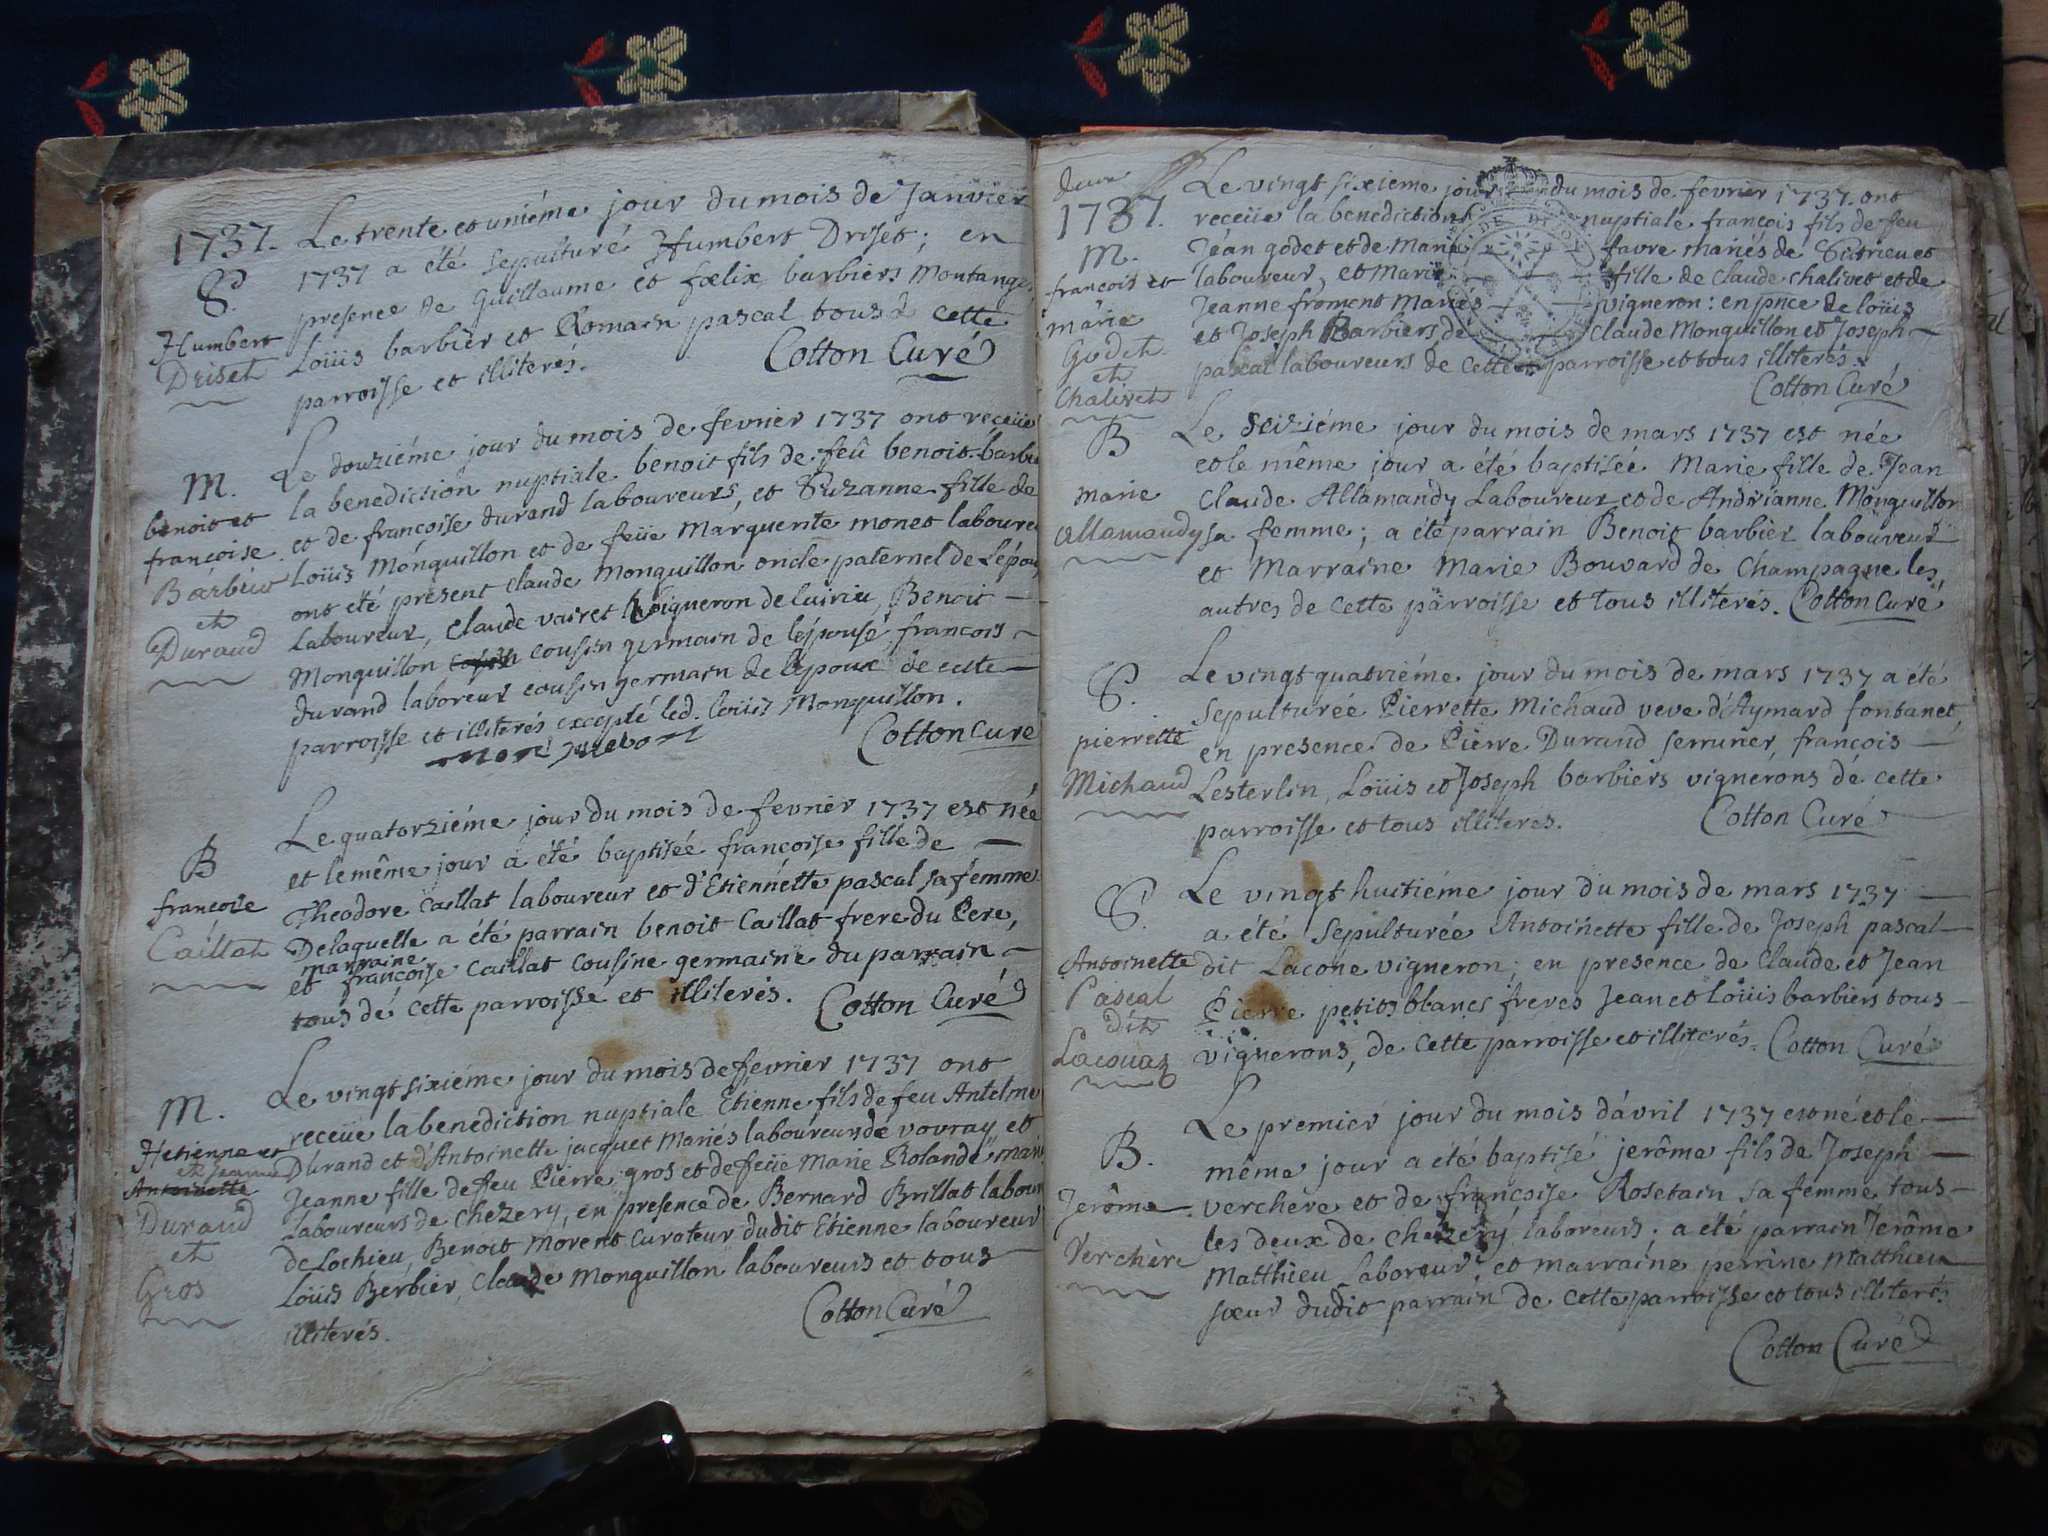 1737.
Le trente et uniéme jour du mois de Janvier
1737 a été sepulturé Humbert Driset; en
presence de Guillaume et foelix barbiers Montange,
Loüis barbier et Romain pascal tous de cette
parroisse et illiterés. Cotton Curé
S.
Humbert
Driset
Le douziéme jour du mois de fevrier 1737 ont receüe
la benediction nuptiale benoit fils de feû benoit barbie
et de francoise durand laboureurs, et Suzanne fille de
Loüis Monquillon et de feüe Marguerite monet laboure
ont été present claude Monquillon oncle paternel de L'épou
laboureur, Claude vairet vigneron de luirieu, Benoit
Monquillon cousin germain de lépousé francois
durand laboreur cousin germain de lépoux de cette
parroisse et illiterés excepté led. loüis Monquillon.
Cotton Curé
M.
benoit et
francoise
Barbier
et
Durand
Le quatorziéme jour du mois de fevrier 1737 est née
et le même jour a été baptisée francoise fille de
Theodore Caillat laboureur et d'Etiennette pascal sa femme
De laquelle a été parrain benoit Caillat frere du Pere,
marraine
et francoise Caillat cousine germaine du parrain
tous dé cette parroisse et illiterés. Cotton Curé
B
francoise
Caillat
Le vingt sixiéme jour du mois de fevrier 1737 ont
receüe la benediction nuptiale Etienne fils de feu Antelme
Durand et d'Antoinette jacquet Mariés laboureurs de vovray et
Jeanne fille de feu Pierre gros et de feüe Marie Rolande mari
Laboureurs de Chezery, en presence de Bernard Brillat labour
de Lochieu, Benoit Morent Curateur dudit Etienne laboureur
Loüis Berbier, Claude Monquillon laboureurs et tous
illiterés. Cotton Curé
M.
Hetienne et
et jeanne
Antoinette
Durand
et
Gros
1737.
Le vingt sixieme jour du mois de fevrier 1737. ont
receüe la benediction nuptiale francois fils de feu
Jean godet et de Marie favre mariés de
laboureur, et Marie fille de claude chalivet et de
Jeanne froment Mariés vigneron: en pnce de loüis
et Joseph Barbiers de Claude Monquillon et Joseph
pascal laboureurs de cette parroisse et tous illiterés.
Cotton Curé
M.
francois et
Marie
Godet
et
Chalivet
Le seiziéme jour du mois de mars 1737 est née
et le même jour a été baptisée Marie fille de Jean
Claude Allamandy Laboureur et de Andrianne Monquillon
sa femme; a été parrain Benoit barbier laboureur
et Marraine Marie Bouvard de Champagne les
autres de cette parroisse et tous illiterés. Cotton Curé
B
Marie
Allamandy
Le vingt quatriéme jour du mois de mars 1737 a été
sepulturée Pierrette Michaud veve d'Aymard fontanet,
en presence de Pierre Durand serrurier, francois
Lesterlin, Loüis et Joseph barbiers vignérons dé cette
parroisse et tous illiteres. Cotton Curé
S.
pierrette
Michaud
Le vingt huitiéme jour du mois de mars 1737
a été sepulturée Antoinette fille de Joseph pascal
dit Lacone vigneron; en presence de Claude et Jean
Pierre petits blancs freres Jean et loüis barbiers tous
vignerons, de cette parroisse et illiterés. Cotton Curé
S.
Antoinette
Pascal
dit
Lacouaz
Le premier jour du mois d'avril 1737 est né et le
même jour a été baptisé jerôme fils de Joseph
verchere et de francoise Rosetain sa femme tous
les deux de chezery laboreurs; a été parrain Jerôme
Matthieu Laboreur, et marraine perrine Matthieu
soeur dudit parrain de cette parroisse et tous illiterés
Cotton Curé
B.
Jerôme
Verchère